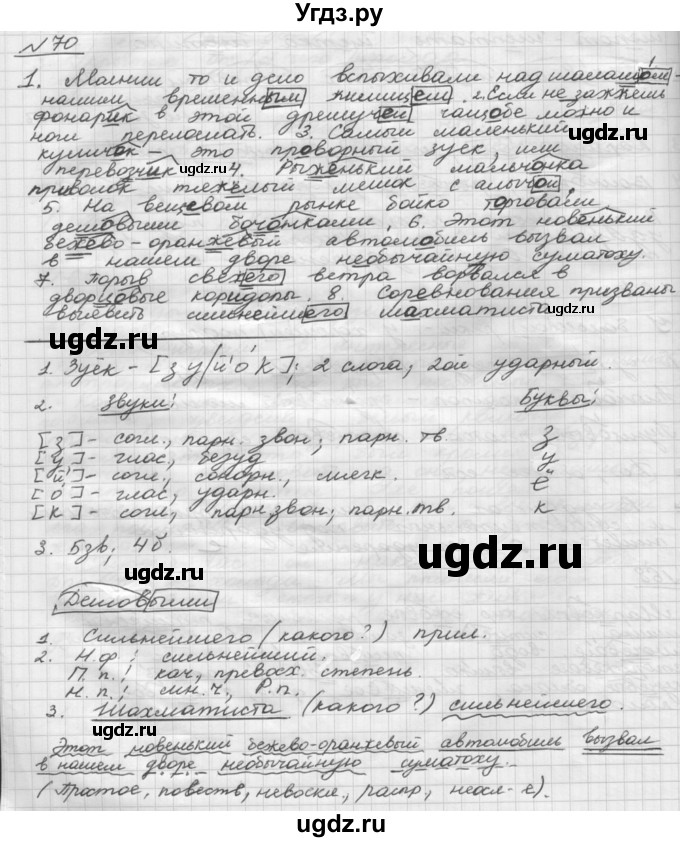 Угдз.ру
№ 70
1. Молнии то и дело вспыхивали над шалашом -
нашим временным жилищем. 2. Если не зажжёшь
фонарик в этой дремучей чащобе можно и
ноги переломать. 3. Самый маленький
куличок - это проворный зуёк, или
перевозчик. 4. Рыженький мальчонка
приволок тяжёлый мешок с алычой.
5. На вещевом рынке бойко торговали
дешовыми бочонками. 6. Этот новенький
бежево-оранжевый автомобиль вызвал
в нашем дворе необычайную суматоху.
7. Порыв свежего ветра ворвался в
дворцовые коридоры. 8. Соревнования призваны
выявить сильнейшего шахматиста.
1. Зуёк - [з у/й' о́ к]; 2 слога, 2ой ударный.
2. Звуки: Буквы:
[з] - согл., парн. звон; парн. тв. з
[у] - глас, безуд у
[й'] - согл., сонорн., мягк. ё
[о́] - глас, ударн.
[к] - согл, парн. звон; парн. тв. к
3. 5зв; 4б.
Дешовыми
1. Сильнейшего (какого?) прил.
2. Н.ф: сильнейший.
П.п.: кач, превосх. степень.
Н.п.: мн.ч., Р.п.
3. Шахматиста (какого?) сильнейшего.
Этот новенький бежево-оранжевый автомобиль вызвал
в нашем дворе необычайную суматоху.
(Простое, повеств, невоскл., распр, неосл-е).
ugdz.ru
ugdz.ru
ugdz.ru
ugdz.ru
ugdz.ru
ugdz.ru
ugdz.ru
ugdz.ru
ugdz.ru
ugdz.ru
ugdz.ru